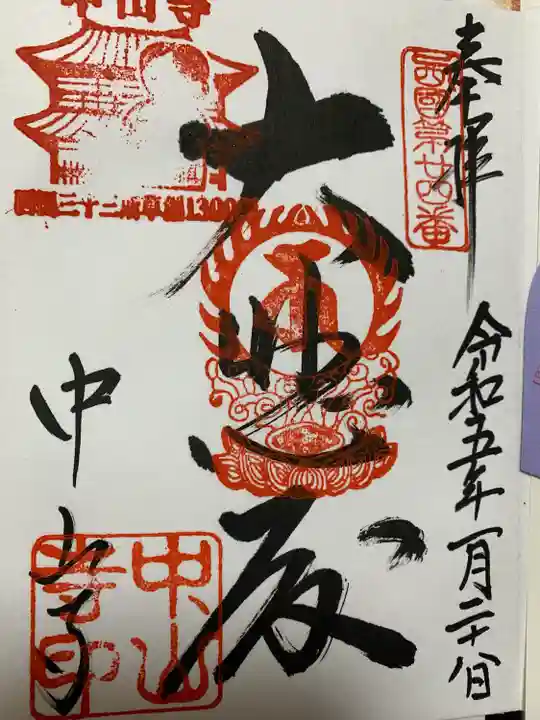 奉拝
西國第廿四番
令和五年一月二十八日
大悲殿
中山寺
中山寺
三十三所草創1300
中山寺印